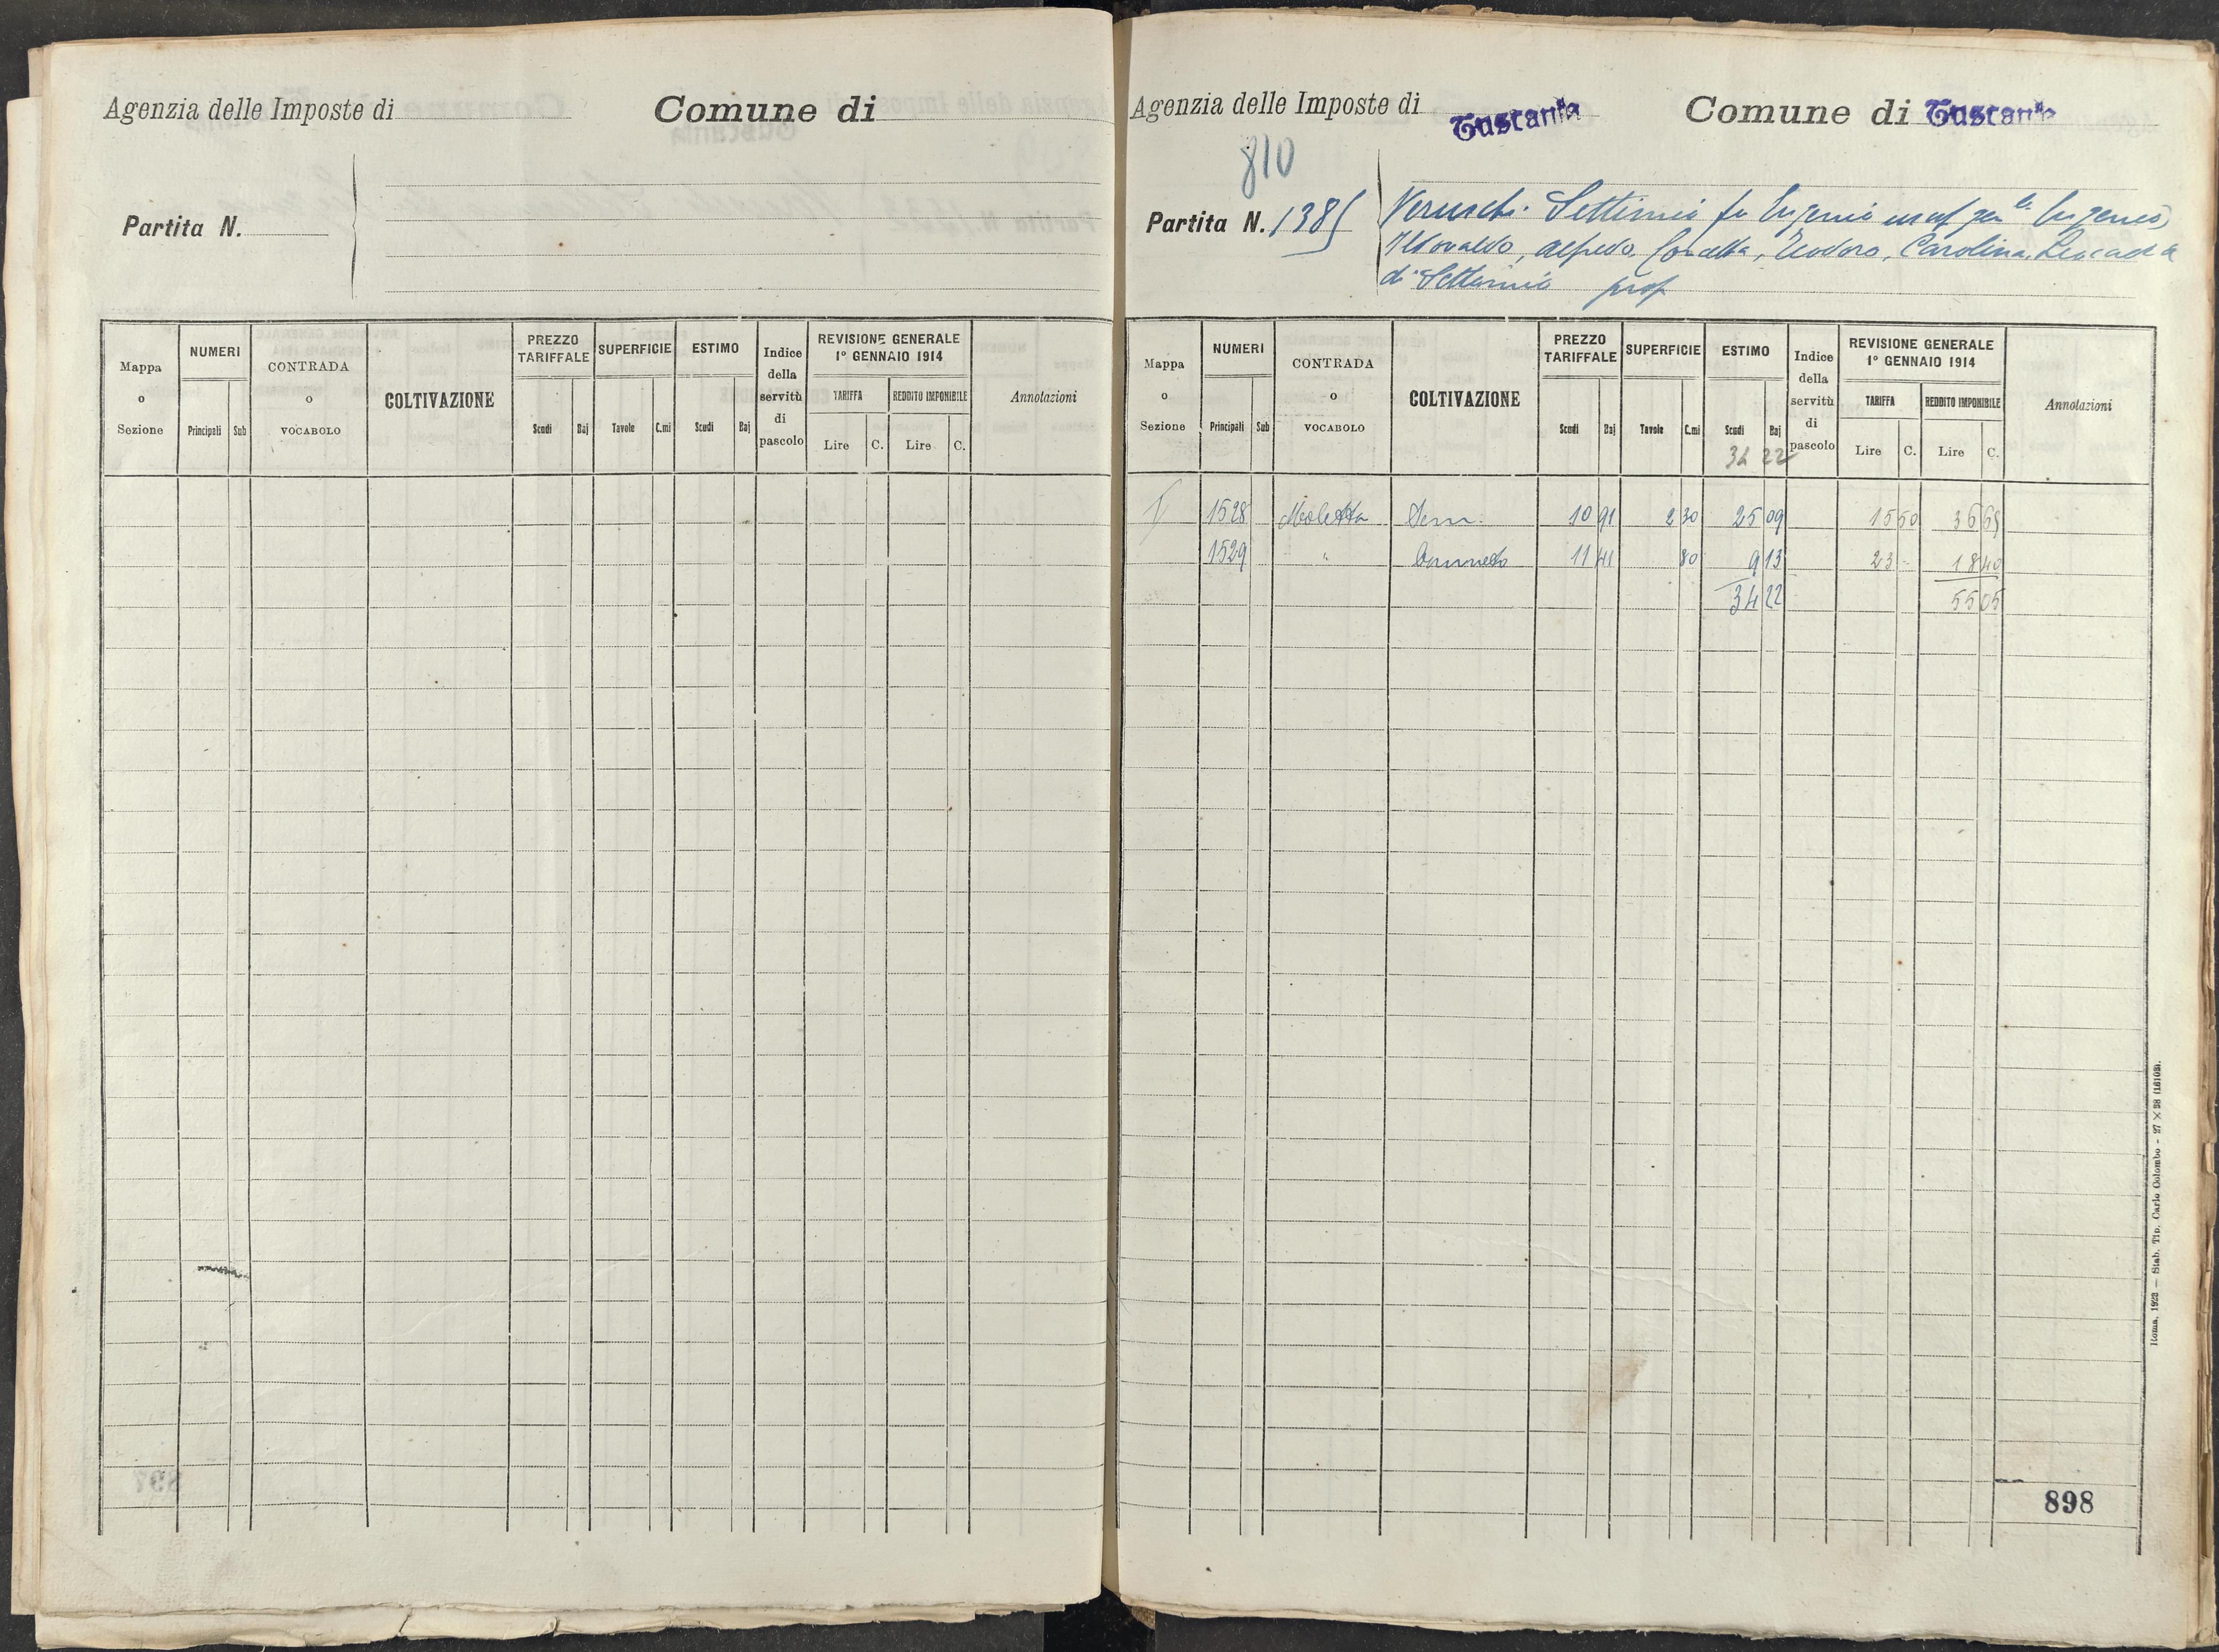 Agenzia delle Imposte di
Comune di
Partita N.
Mappa o Sezione
NUMERI
Principali Sub
CONTRADA O VOCABOLO
COLTIVAZIONE
PREZZO TARIFFALE
Scudi Baj
SUPERFICIE
Tavole C.mi
ESTIMO
Scudi Baj
Indice della servitù di pascolo
REVISIONE GENERALE
1° GENNAIO 1914
TARIFFA
Lire C.
REDDITO IMPONIBILE
Lire C.
Annotazioni
Agenzia delle Imposte di Tuscania
Comune di Tuscania
810
Partita N. 1385
Settimio fu Eugenio
Alfredo, Teodoro, Carolina, Leocadia
di Settimio prop
Mappa o Sezione
NUMERI
Principali Sub
CONTRADA O VOCABOLO
COLTIVAZIONE
PREZZO TARIFFALE
Scudi Baj
SUPERFICIE
Tavole C.mi
ESTIMO
Scudi Baj
34 22
Indice della servitù di pascolo
REVISIONE GENERALE
1° GENNAIO 1914
TARIFFA
Lire C.
REDDITO IMPONIBILE
Lire C.
Annotazioni
1528 Sem. 10 91 2 30 25 09 15 50 36 65
1529 " Canneto 11 41 80 9 13 23 - 18 40
34 22 55 05
Roma, 1923 — Stab. Tip. Carlo Colombo - 27 × 38
898